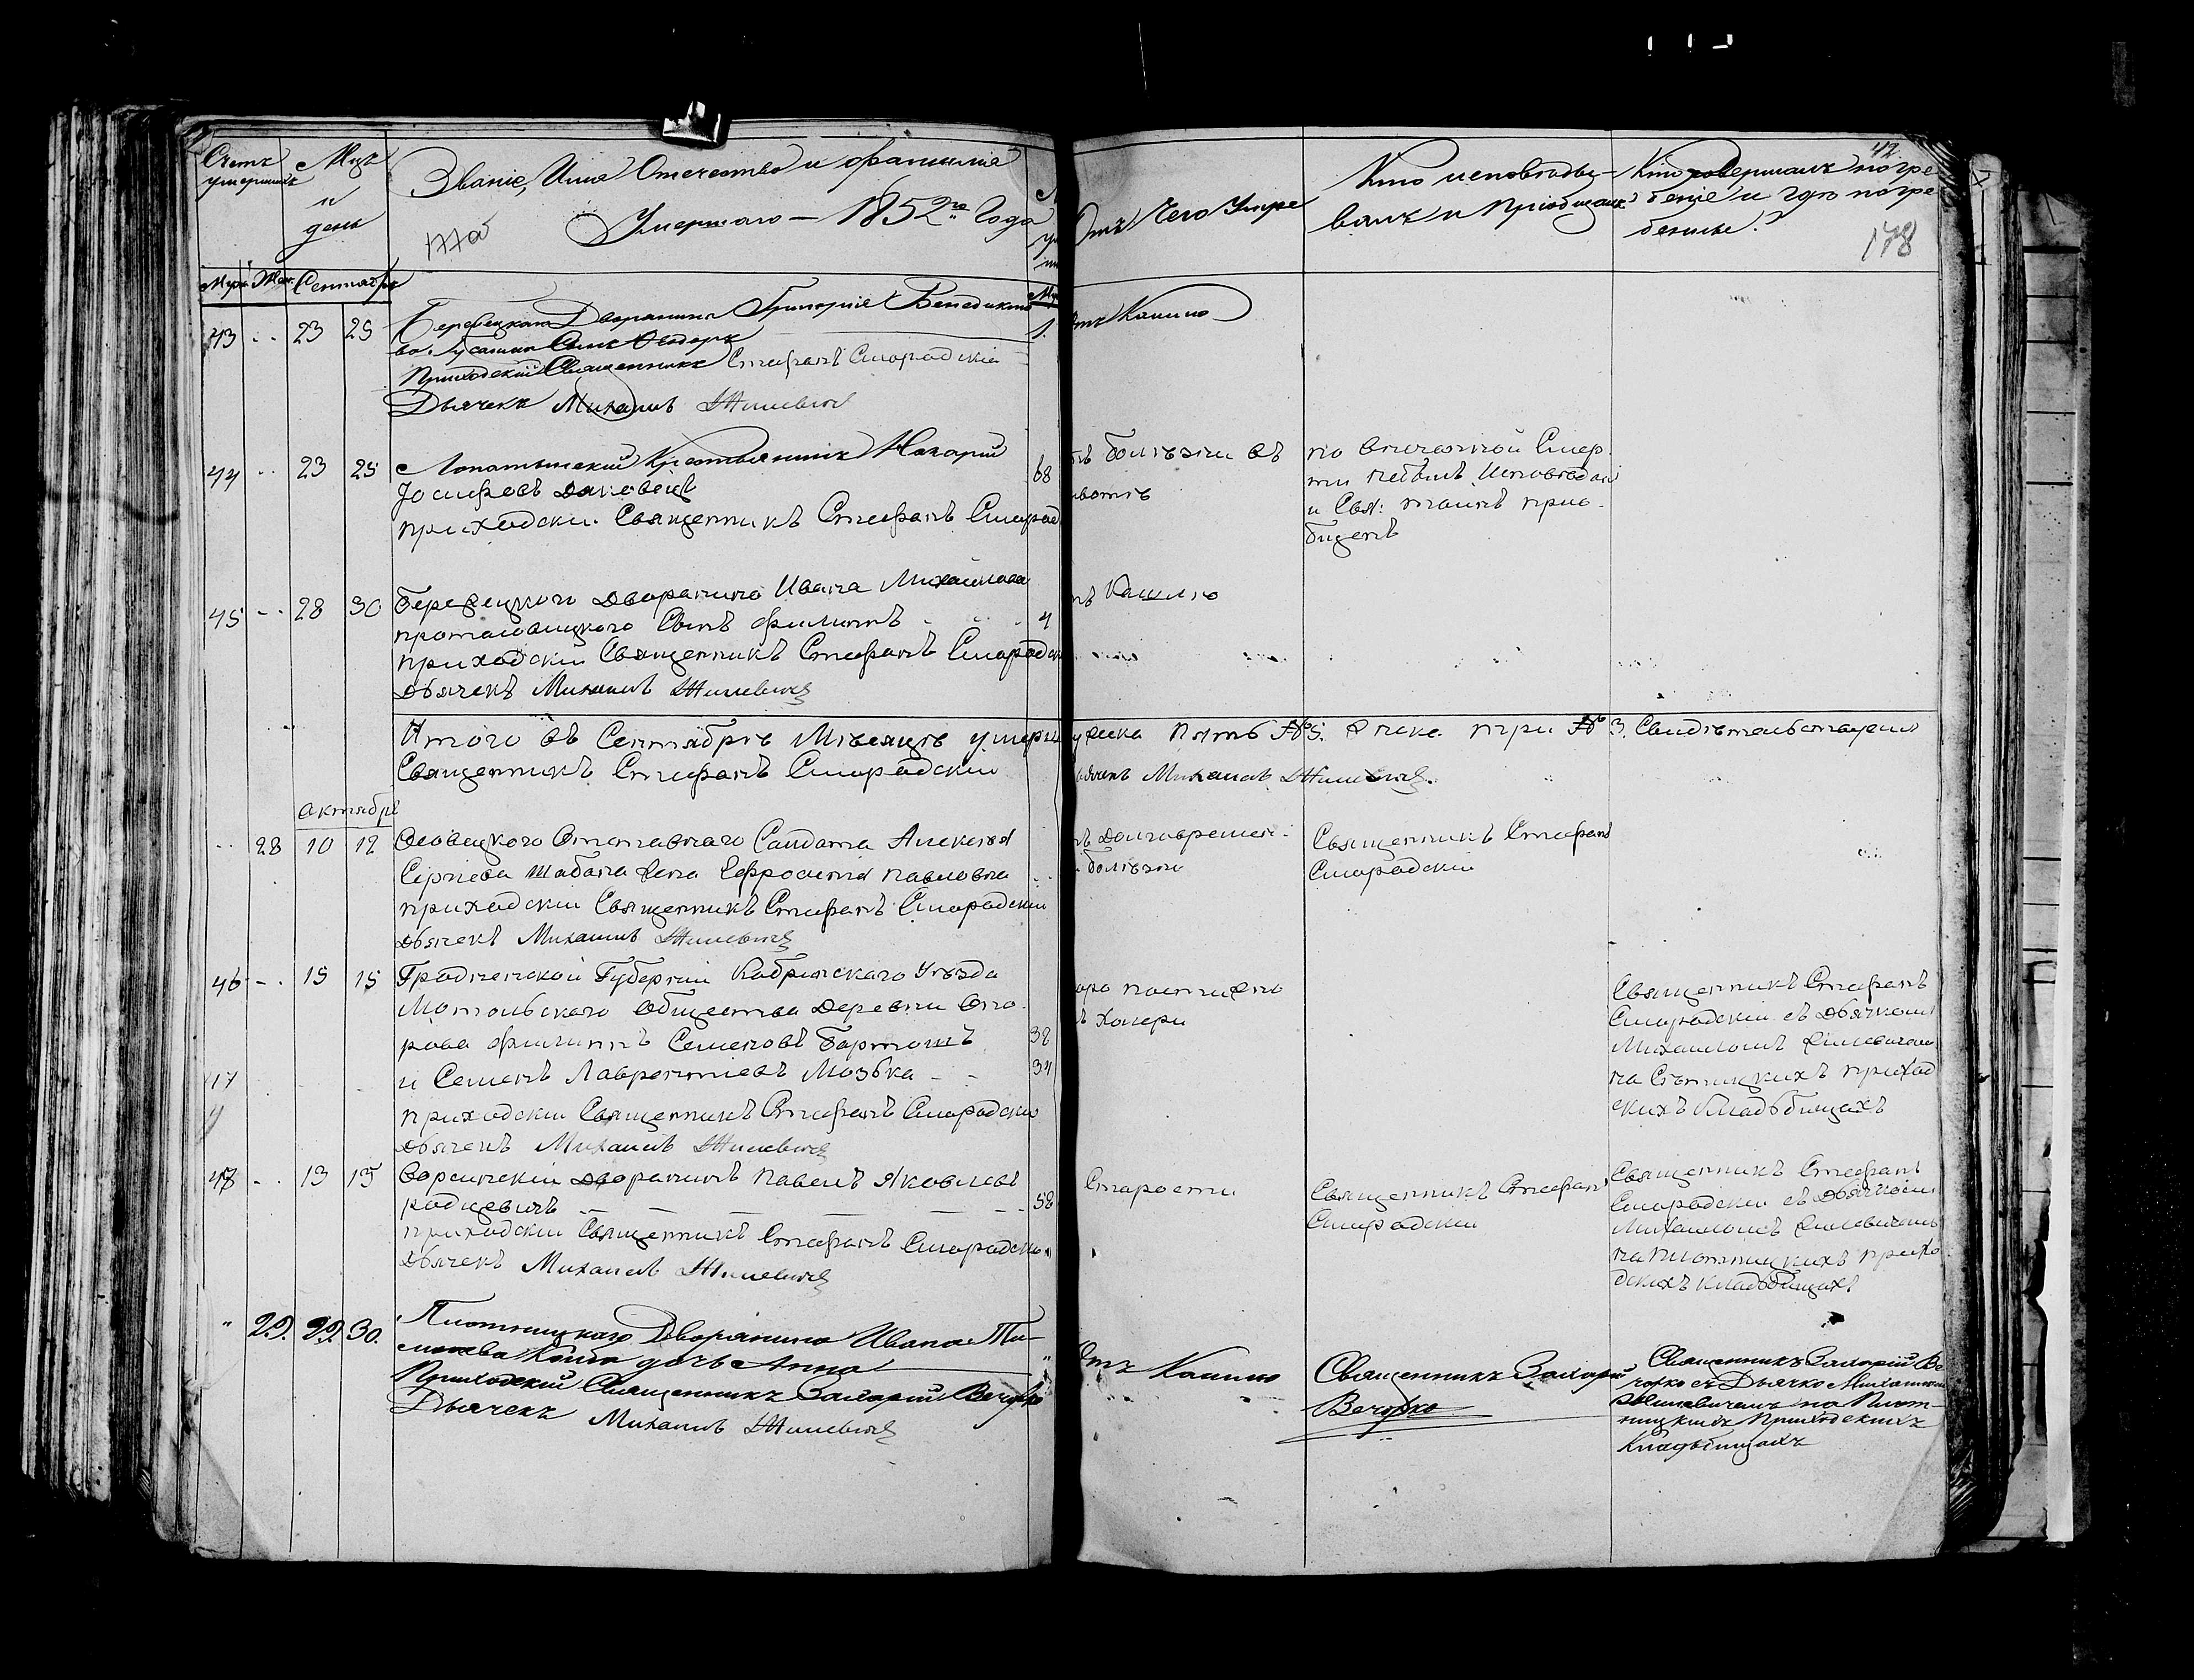 Счетъ умершихъ
Мцъ и день
Званіе, Имя Отечество и фамиліе
Умершаго — 1852го Года
177об
Отъ Чего Умре
Кто исповѣды-
валъ и Пріобщалъ
Кто совершалъ погре
беніе и гдѣ погре
бенные?
42
178
Муж. Жен. Сентябрь
43 .. 23 25
Дворянина Григорія Бенедиктов
ва Сынъ Ѳедоръ
1.
Приходскій Священникъ Стефанъ Смородскій
Дьячекъ Михаилъ Жилевичъ
Отъ Кашлю
44 .. 23 25
Лопатынскій Крестьянинъ Макарій
Іосифовъ
68
приходскій Священникъ Стефанъ Смород
болѣзни въ
животѣ
по внезапной Смер
ти небылъ Исповѣдан
и Свят: таинъ прио-
бщенъ
45 .. 28 30
Дворянина Ивана Михайлова
Протасовицкого Сынъ Филипъ
4
приходскій Священникъ Стефанъ Смородск
Дьячекъ Михаилъ Жилевичъ
Кашлю
Итого въ Сентябрѣ Мѣсяцѣ умерш
Священникъ Стефанъ Смородскій
пять №5. три № 3. Свидѣтельствуемъ
Михаилъ Жилевичъ.
октябрь
.. 28 10 12
Отставнаго Салдата Алексѣя
Сергіева Шабана Жена Ефросинія Павловна
приходскій Священникъ Стефанъ Смородскій
Дьячекъ Михаилъ Жилевичъ
Долговремен-
болѣзни
Священникъ Стефанъ
Смородскій
46 .. 15 15
Гродненской Губерніи Кобринскаго Уѣзда
Мотольскаго Общества Деревни Опо-
рова Филиппъ Семеновъ Бартошъ
32
47
и Семенъ Лаврентіевъ Мозька
34
приходскій Священникъ Стефанъ Смородскій
Дьячекъ Михаилъ Жилевичъ
Холеры
Священникъ Стефанъ
Смородскій съ Дьячкомъ
Михаиломъ Жилевичемъ
на приход
скихъ Кладбищахъ
48 .. 13 15
Дворянинъ Павелъ Яковлевъ
Родцевичъ
58
приходскій Священникъ Стефанъ Смородскій
Дьячекъ Михаилъ Жилевичъ
Старости
Священникъ Стефанъ
Смородскій
Священникъ Стефанъ
Смородскій съ Дьячкомъ
Михаиломъ Жилевичемъ
на Плотницкихъ прихо
дскихъ кладбищахъ
" 29. 29 30.
Плотницкаго Дворянина Ивана Ти-
дочь Анна
Приходскій Священникъ Захарій Вечорко
Дьячекъ Михаилъ Жилевичъ
Отъ Кашлю
Священникъ Захарій
Вечорко
Священникъ Захарій Ве
чорко съ Дьячко Михаиломъ
Жилевичемъ на Плот-
ницкихъ Приходскихъ
Кладбищахъ